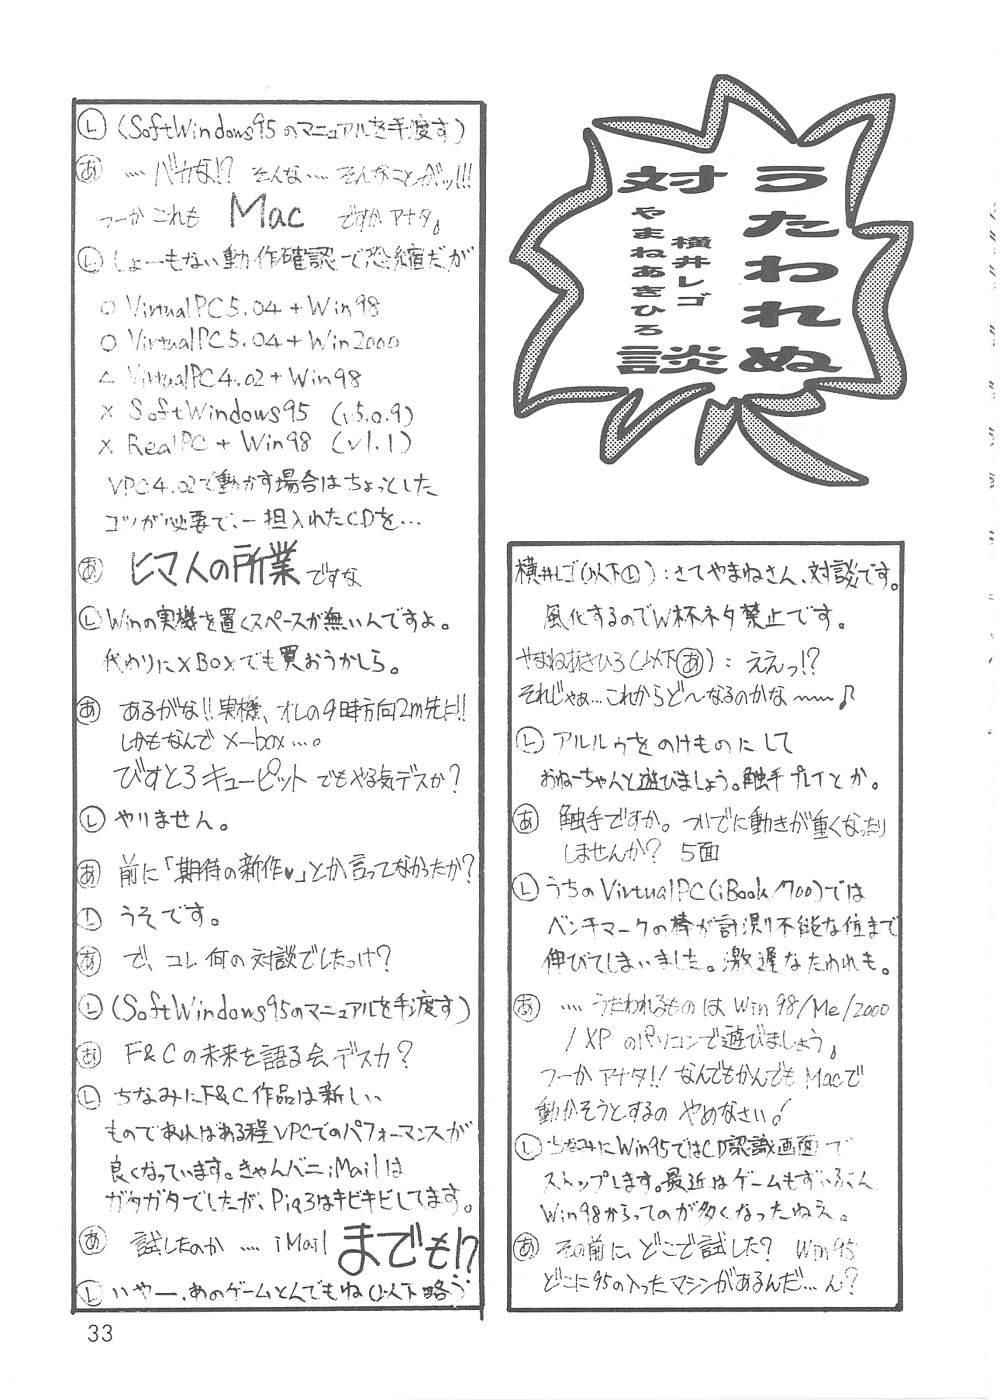 うたわれぬ
対談
横井レゴ
やまねあきひろ
横井レゴ(以下Ⓛ):さてやまねさん、対談です。
風化するのでW杯ネタ禁止です。
やまねあきひろ(以下あ): ええっ!?
それじゃぁ…これからど〜なるのかな〜〜♪
Ⓛ アルルゥをのけものにして
おねーちゃんと遊びましょう。触手プレイとか。
あ 触手ですか。ついでに動きが重くなったり
しませんか? 5面
Ⓛ うちのVirtualPC(iBook/700)では
ベンチマークの棒が計測不能な位まで
伸びてしまいました。激遅なたわれも。
あ ‥‥うたわれるものは Win 98/Me/2000
/XP のパソコンで遊びましょう。
つーかアナタ!! なんでもかんでもMacで
動かそうとするの やめなさい!
Ⓛ ちなみにWin95ではCD認識画面で
ストップします。最近はゲームもずいぶん
Win98からってのが多くなったねえ。
あ その前に、どこで試した? Win95
どこに95の入ったマシンがあるんだ…ん?
Ⓛ (SoftWindows95のマニュアルを手渡す)
あ ‥‥バカな!? そんな‥‥そんなことがッ!!!
つーかこれも Mac ですかアナタ。
Ⓛ しょーもない動作確認で恐縮だが
○ VirtualPC5.04+Win98
○ VirtualPC5.04+Win2000
△ VirtualPC4.02+Win98
× SoftWindows95 (v5.0.9)
× RealPC+Win98 (v1.1)
VPC4.02で動かす場合はちょっとした
コツが必要で、一担入れたCDを…
あ ヒマ人の所業ですな
Ⓛ Winの実機を置くスペースが無いんですよ。
代わりにXBoxでも買おうかしら。
あ あるがな!!実機、オレの9時方向2m先に!!
しかもなんで X-box…。
びすとろキューピットでもやる気デスか?
Ⓛ やりません。
あ 前に「期待の新作♥」とか言ってなかったか?
Ⓛ うそです。
あ で、コレ何の対談でしたっけ?
Ⓛ (SoftWindows95のマニュアルを手渡す)
あ F&Cの未来を語る会デスカ?
Ⓛ ちなみにF&C作品は新しい
ものであればある程VPCでのパフォーマンスが
良くなっています。きゃんバニiMailは
ガタガタでしたが、Pia3はキビキビしてます。
あ 試したのか‥‥iMailまでも!?
Ⓛ いやー、あのゲームとんでもね(以下略)
33